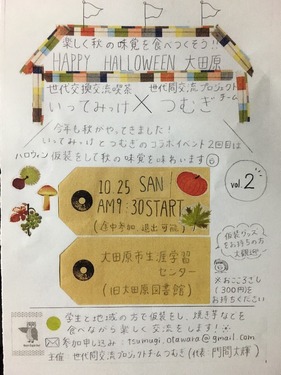 楽しく秋の味覚を食べつくそう!!
HAPPY HALLOWEEN 大田原
世代交換交流喫茶 世代間交流プロジェクトチーム
いってみっけ × つむぎ
今年も秋がやってきました!
いってみっけとつむぎのコラボイベント2回目は
ハロウィン仮装をして秋の味覚を味わいます
10.25 SAN
AM9:30START
(途中参加、退出可能)
vol.2
大田原市生涯学習
センター
(旧大田原図書館)
仮装グッズ
をお持ちの方
大歓迎
※おこころざし
(300円)を
お持ちください
学生と地域の方で仮装をし、焼き芋などを
食べながら楽しく交流をします!
参加申し込み:tsumugi.otawara@gmail.com
主催 世代間交流プロジェクトチームつむぎ(代表:門間大輝)